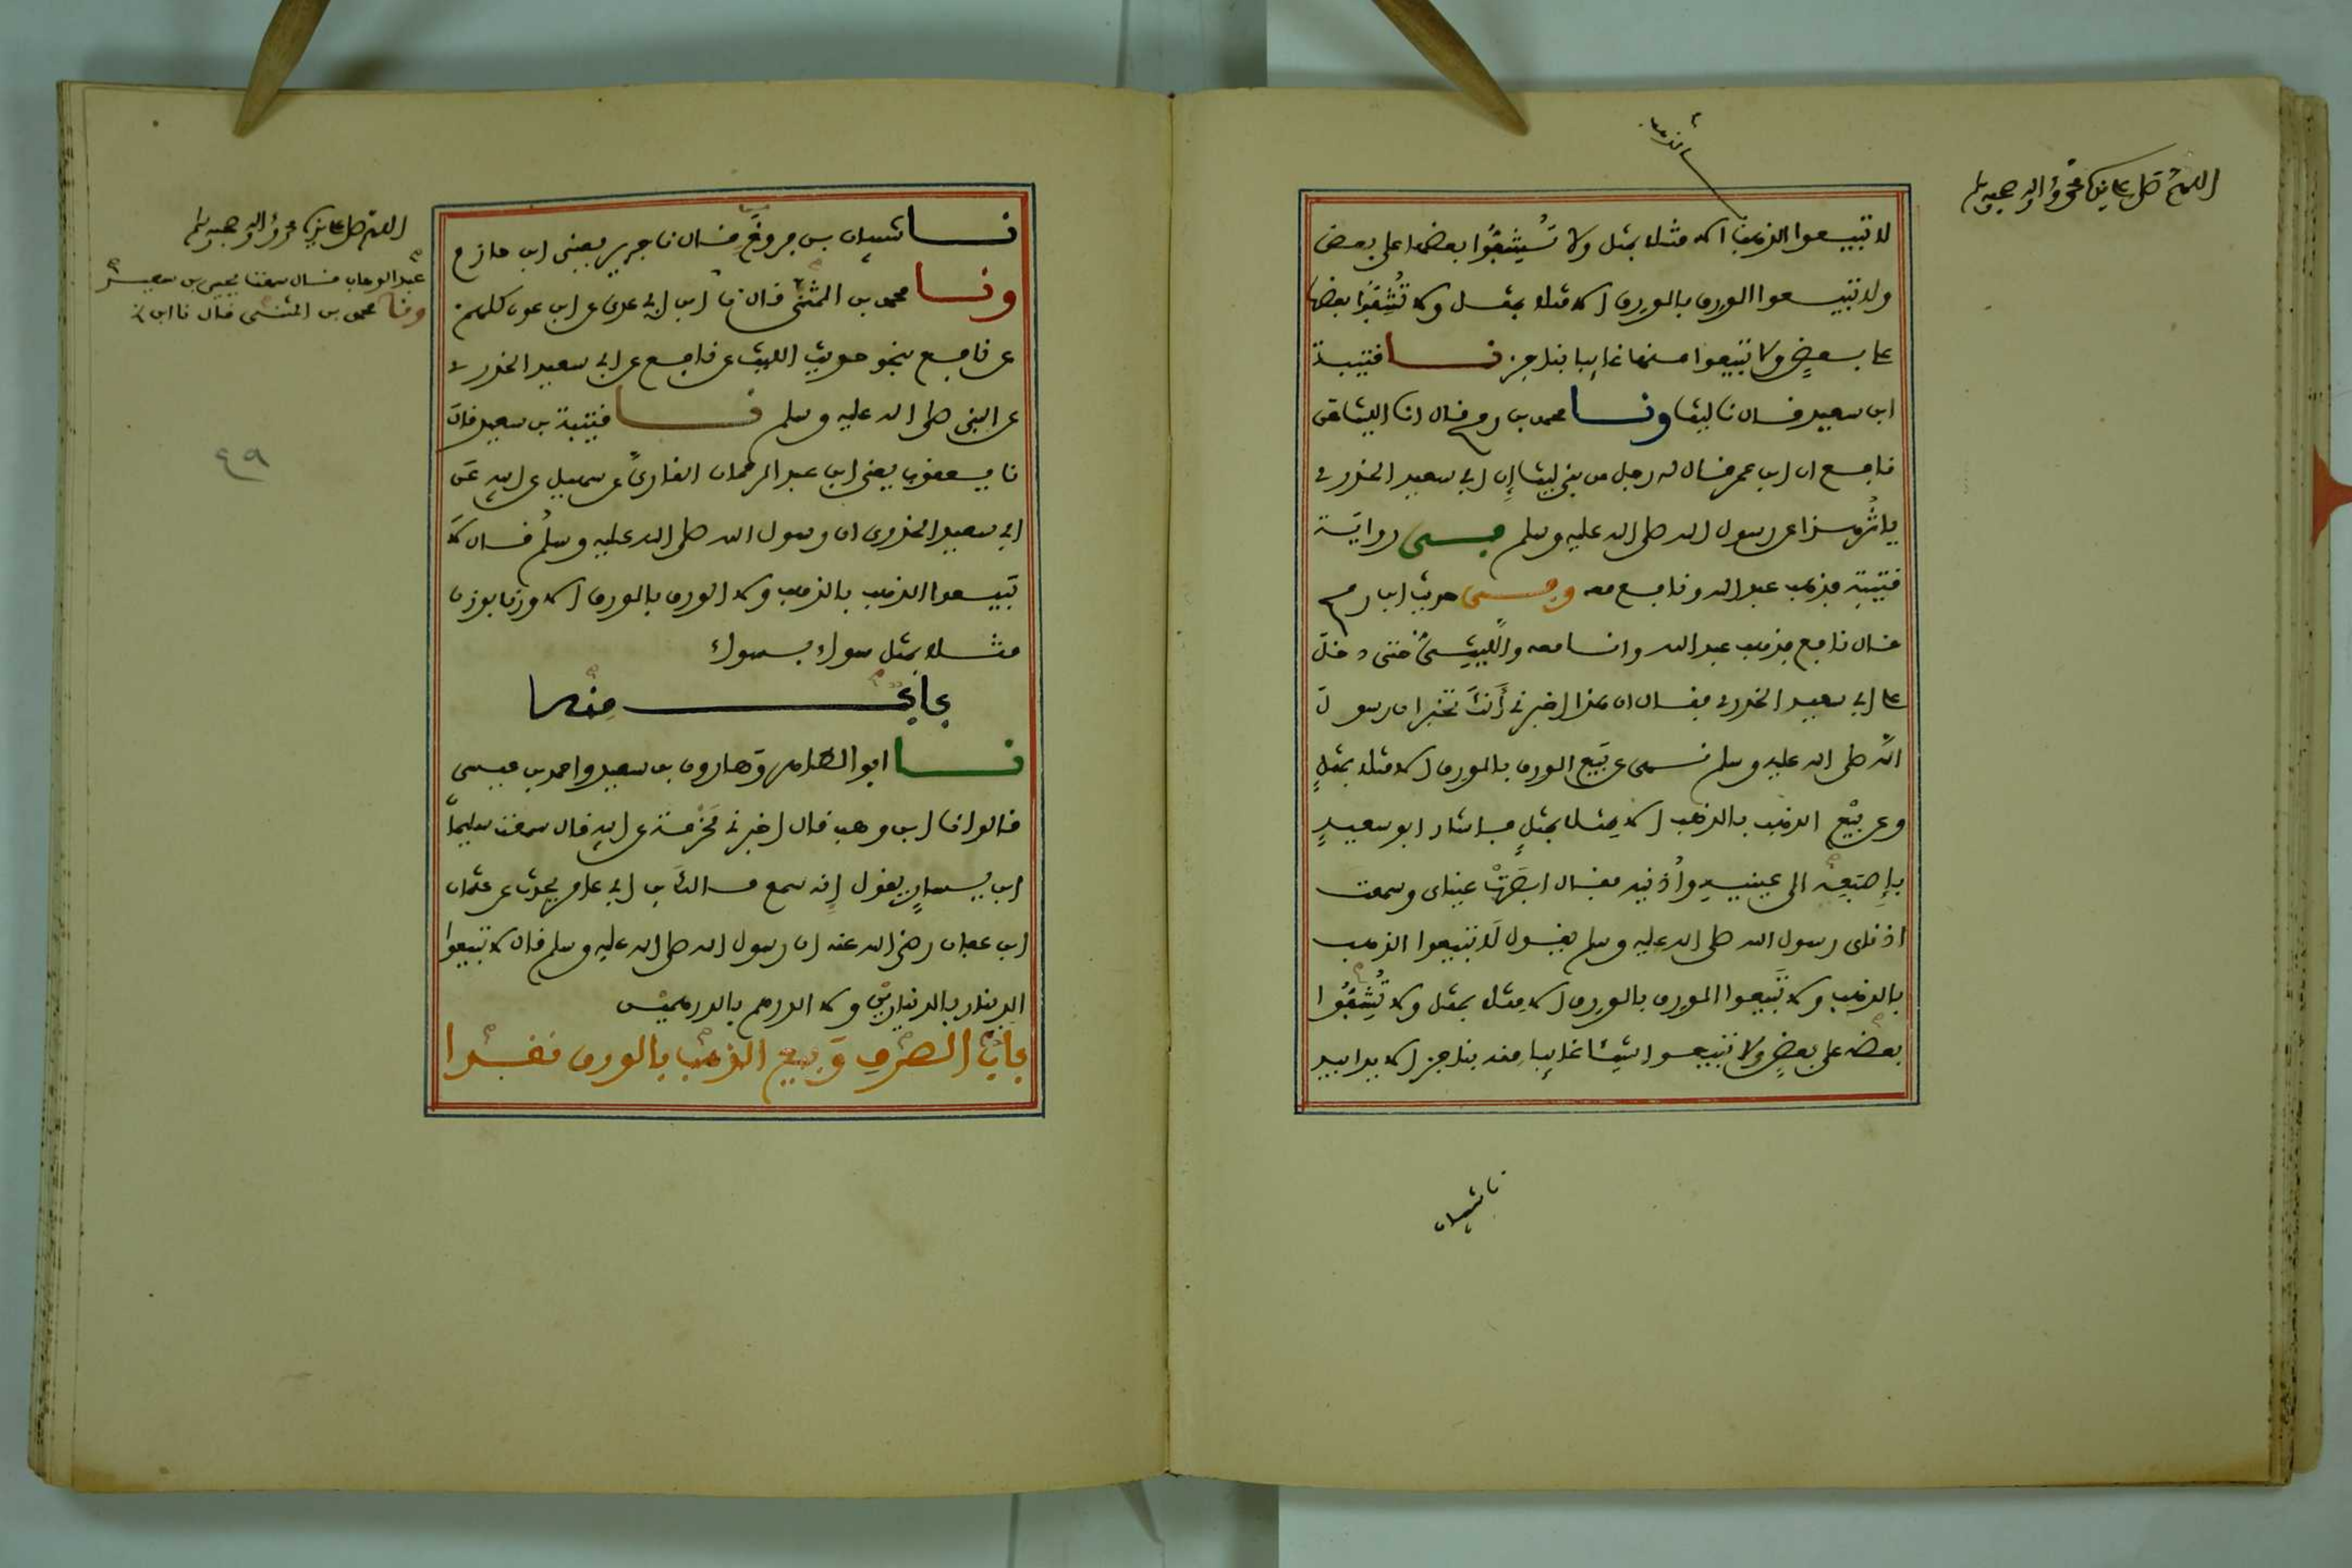 اللهم صل على نبيك محمد وآله وصحبه وسلم
بالذهب
لا تبيعوا الذهب الا مثلا بمثل ولا تُشِفُّوا بعضها على بعض
ولا تبيعوا الورق بالورق الا مثلا بمثل ولا تُشِفُّوا بعضها
على بعضٍ ولا تبيعوا منها غايبا بناجز نا قتيبة
ابن سعيد قال نا ليث ونا محمد بن رمح قال انا الليث عن
نافع ان ابن عمر قال له رجل من بني ليث إن ابي سعيد الخدري
ياثر هذا عن رسول الله صلى الله عليه وسلم في رواية
قتيبة فذهب عبد الله ونافع معه وفي حديث ابن رمح
قال نافع فذهب عبد الله وانا معه والليثيُّ حتى دخل
على ابي سعيد الخدري فقال ان هذا اخبرني أَنكَ تخبر ان رسول
الله صلى الله عليه وسلم نهى عن بَيْع الورق بالورق الا مثلا بمثلٍ
وعن بيْع الذهب بالذهب الا مِثلا بمثلٍ فاشار ابو سعيدٍ
بإِصْبَعِهِ الى عينيهِ وأُذنيه فقال ابصَرَتْ عيناى وسمعت
اذناى رسول الله صلى الله عليه وسلم يقول لَا تبيعوا الذهب
بالذهب ولا تَبيعوا الورق بالورق الا مِثلا بمثل ولا تُشِفُّوا
بعضه على بعضٍ ولا تبيعوا شيئا غايبا منه بناجز الا يدا بيد
نا شيبان
اللهم صل على نبيك محمد وآله وصحبه وسلم
عبد الوهاب قال سمعت يحيى بن سعيد ح
ونا محمد بن المثنى قال نا ابن
٤٩
نا شيبان بن فروخَ قال نا جرير يعني ابن حازم
ونا محمد بن المثنى قال نا ابن ابي عدى عن ابن عون كلهم
عن نافع بنحو حديثِ الليث عن نافع عن ابي سعيد الخدري
عن النبي صلى الله عليه وسلم نا قتيبة بن سعيد قال
نا يعقوب يعني ابن عبد الرحمان القارىَّ عن سهيل عن ابيه عن
ابي سعيد الخدرى ان رسول الله صلى الله عليه وسلم قال لا
تَبيعوا الذهب بالذهب ولا الورق بالورق الا وزنا بوزن
مثلا بمثل سواء بسواء
بابٌ منه
نا ابو الطاهر وَهارون بن سعيد واحمد بن عيسى
قالوا نا ابن وهب قال اخبرني مَخْرَمة عن ابيه قال سمعت سليما
ابن يسارٍ يقول إنه سمع مالك بن ابي عامر يحدث عن عثمان
ابن عفان رضي الله عنه ان رسول الله صلى الله عليه وسلم قال لا تبيعوا
الدينار بالدينارَيْنِ ولا الدرهم بالدرهميْن
بابُ الصرْفِ وَبيع الذهب بالورق نقدا